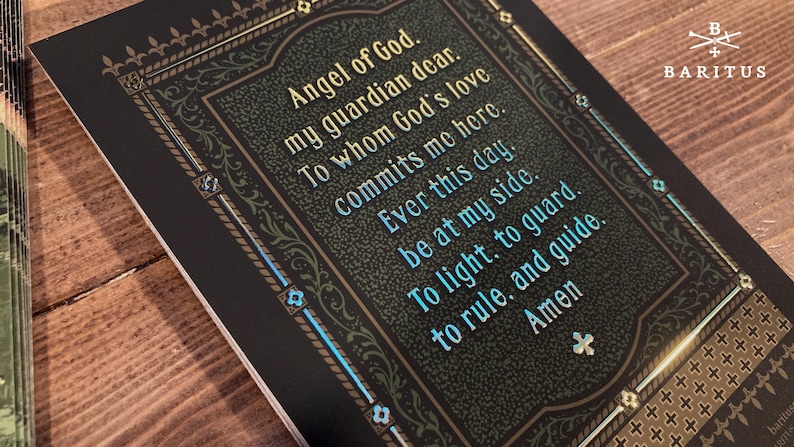 B
BARITUS
Angel of God.
my guardian dear.
To whom God's love
commits me here.
Ever this day.
be at my side.
To light, to guard.
to rule, and guide.
Amen